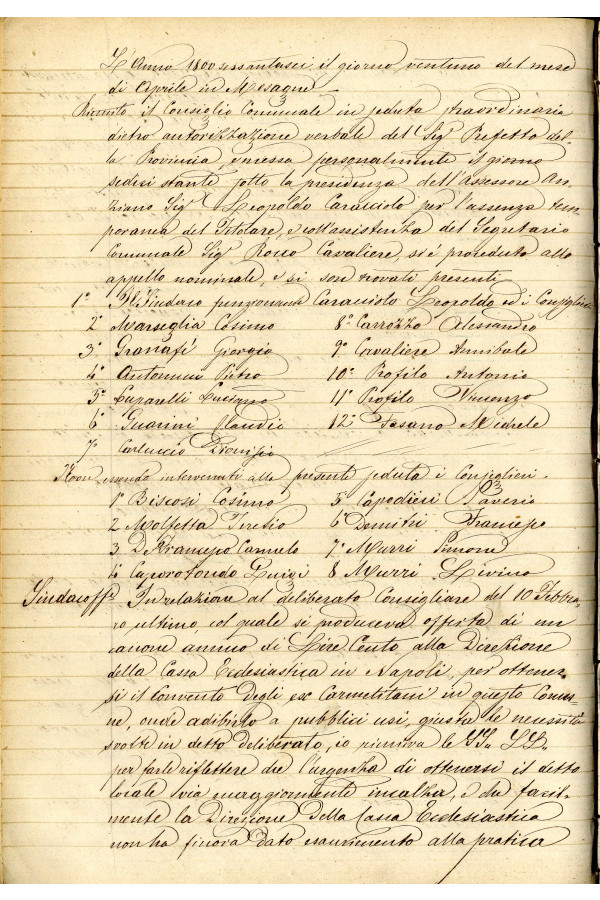 L'Anno 1800sessantasei il giorno ventuno del mese
di Aprile in Mesagne
Riunito il Consiglio Comunale in seduta straordinaria
dietro autorizzazione verbale del Sigr Prefetto del-
la Provincia, emessa personalmente il giorno
sedici stante sotto la presidenza dell'Assessore An-
ziano Sigr Leopoldo Caracciolo per l'assenza tem-
poranea del Titolare, e coll'assistenza del Segretario
Comunale Sigr Rocco Cavaliere, si è proceduto allo
appello nominale, e si son trovati presenti
1° Il Sindaco funzionante Caracciolo Leopoldo ed i Consiglieri
2° Marseglia Cosimo 8° Carrozzo Alessandro
3° Granafi Giorgio 9° Cavaliere Annibale
4° Antonucci Pietro 10° Profilo Antonio
5° Luparelli 11° Profilo Vincenzo
6° Guarini Claudio 12° Fasano Michele
7° Carluccio Dionisio
Non essendo intervenuti alla presente seduta i Consiglieri.
1° Biscosi Cosimo 5° Capodieci Saverio
2 Molfetta Teresio 6° Demitri Francesco
3 De Francesco Carmelo 7° Murri Simone
4 Caporotondo Luigi 8 Murri Livino
Sindaco ff. In relazione al deliberato Consigliare del 10 Febbra-
ro ultimo col quale si produceva offerta di un
canone annuo di Lire Cento alla Direzione
della Cassa Ecclesiastica in Napoli, per ottener-
si il Convento degli ex Carmelitani in questo Comu-
ne, onde adibirlo a pubblici usi, giusta le necessità
svolte in detto deliberato, io riuniva le SS. LL.
per farle riflettere che l'urgenza di ottenersi il detto
locale via maggiormente incalza, e che facil-
mente la Direzione della Cassa Ecclesiastica
non ha finora dato esaurimento alla pratica